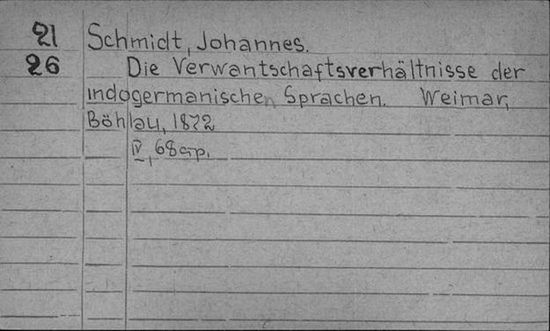 21 Schmidt, Johannes.
26 Die Verwantschaftsverhältnisse der
indogermanischen Sprachen. Weimar,
Böhlau, 1872
IV, 68 c.p.